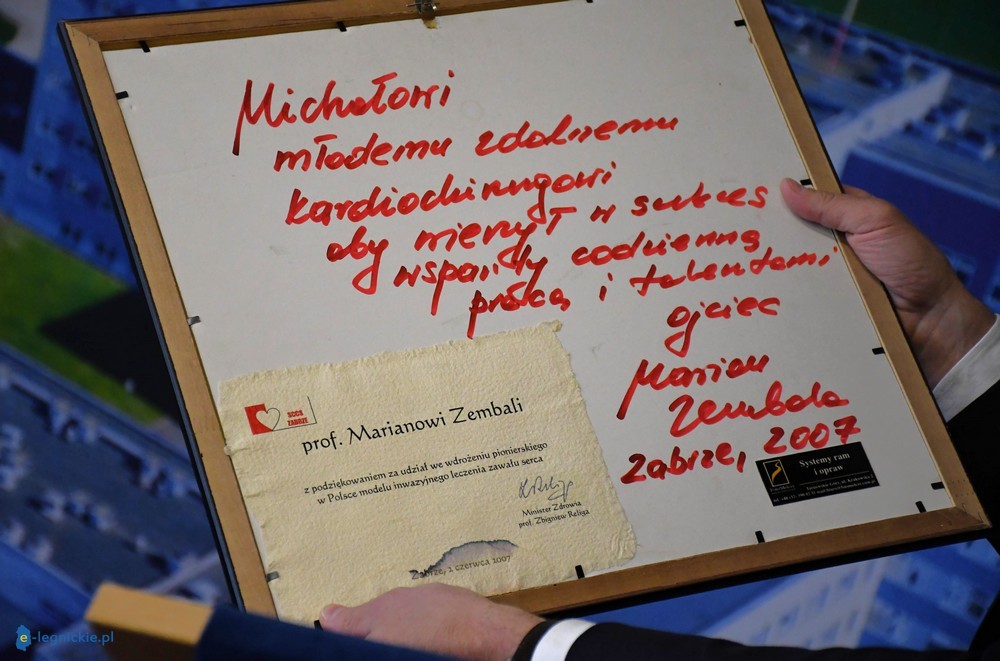 Michałowi
młodemu zdolnemu
kardiochirurgowi
aby wierzył w sukces
wsparty codzienną
pracą i talentami
ojciec
Marian
Zembala
Zabrze, 2007
SCCS
ZABRZE
prof. Marianowi Zembali
z podziękowaniem za udział we wdrożeniu pionierskiego
w Polsce modelu inwazyjnego leczenia zawału serca
Minister Zdrowia
prof. Zbigniew Religa
Zabrze, 1 czerwca 2007
Systemy ram
i opraw
e-legnickie.pl